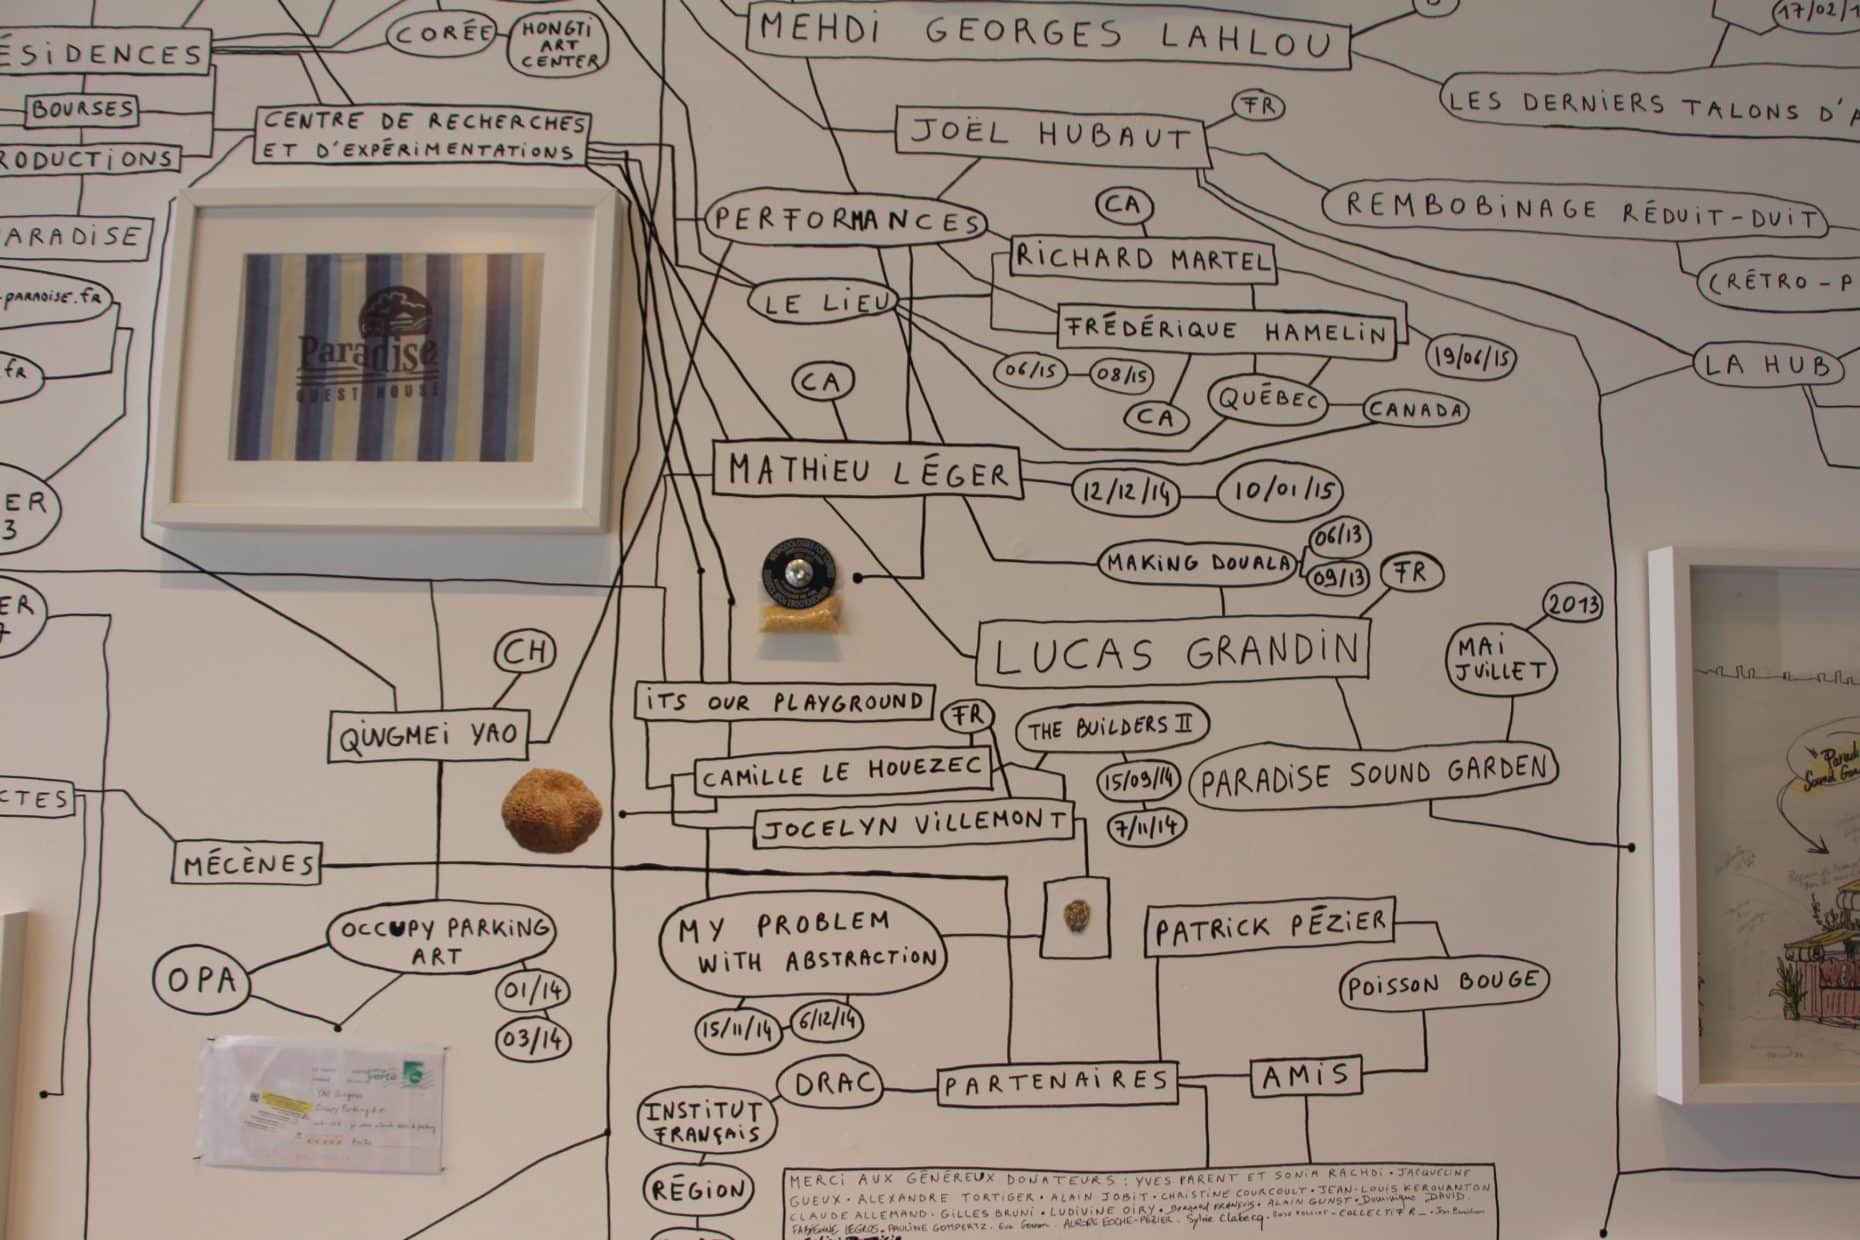 CORÉE
HONGTI
ART
CENTER
MEHDI GEORGES LAHLOU
17/02/1
ÉSIDENCES
BOURSES
RODUCTIONS
ARADISE
-PARADISE.fr
fr
CENTRE DE RECHERCHES
ET D'EXPÉRIMENTATIONS
JOËL HUBAUT
FR
LES DERNIERS TALONS D'A
PERFORMANCES
CA
REMBOBINAGE RÉDUIT-DUIT
RICHARD MARTEL
(RÉTRO-P
LE LIEU
FRÉDÉRIQUE HAMELIN
19/06/15
LA HUB
Paradise
GUEST HOUSE
06/15
08/15
CA
CA
QUÉBEC
CANADA
MATHIEU LÉGER
12/12/14
10/01/15
ER
3
MAKING DOUALA
06/13
09/13
FR
2013
MAI
JUILLET
ER
7
LUCAS GRANDIN
CH
QINGMEI YAO
ITS OUR PLAYGROUND
FR
THE BUILDERS II
CAMILLE LE HOUEZEC
15/09/14
7/11/14
PARADISE SOUND GARDEN
Sound
JOCELYN VILLEMONT
CTES
MÉCÈNES
OCCUPY PARKING
ART
OPA
01/14
03/14
MY PROBLEM
WITH ABSTRACTION
15/11/14
6/12/14
PATRICK PÉZIER
POISSON BOUGE
DRAC
PARTENAIRES
AMIS
INSTITUT
FRANÇAIS
RÉGION
MERCI AUX GÉNÉREUX DONATEURS : YVES PARENT ET SONIA RACHDI • JACQUELINE
GUEUX • ALEXANDRE TORTIGER • ALAIN JOBIT • CHRISTINE COURCOULT • JEAN-LOUIS KEROUANTON
CLAUDE ALLEMAND • GILLES BRUNI • LUDIVINE OIRY • Bernard FRANÇOIS • ALAIN GUNST • Dominique DAVID.
FABIENNE LEGROS • PAULINE GOMPERTZ • AURORE EOCHE-PÉZIER. Sylvie Clabecq • COLLECTIF R